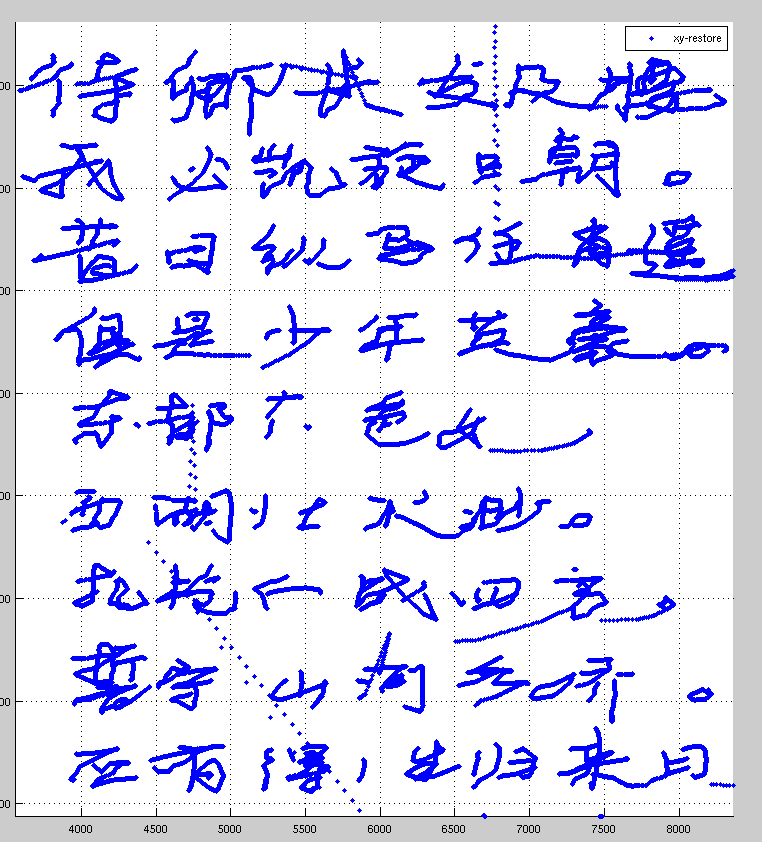 xy-restore
待卿长发及腰
我必凯旋回朝。
昔日纵马任逍遥
俱是少年英豪。
东都 色
西湖 渺。
执枪 战四方。
誓守山河多娇。
应有得胜归来日
4000 4500 5000 5500 6000 6500 7000 7500 8000